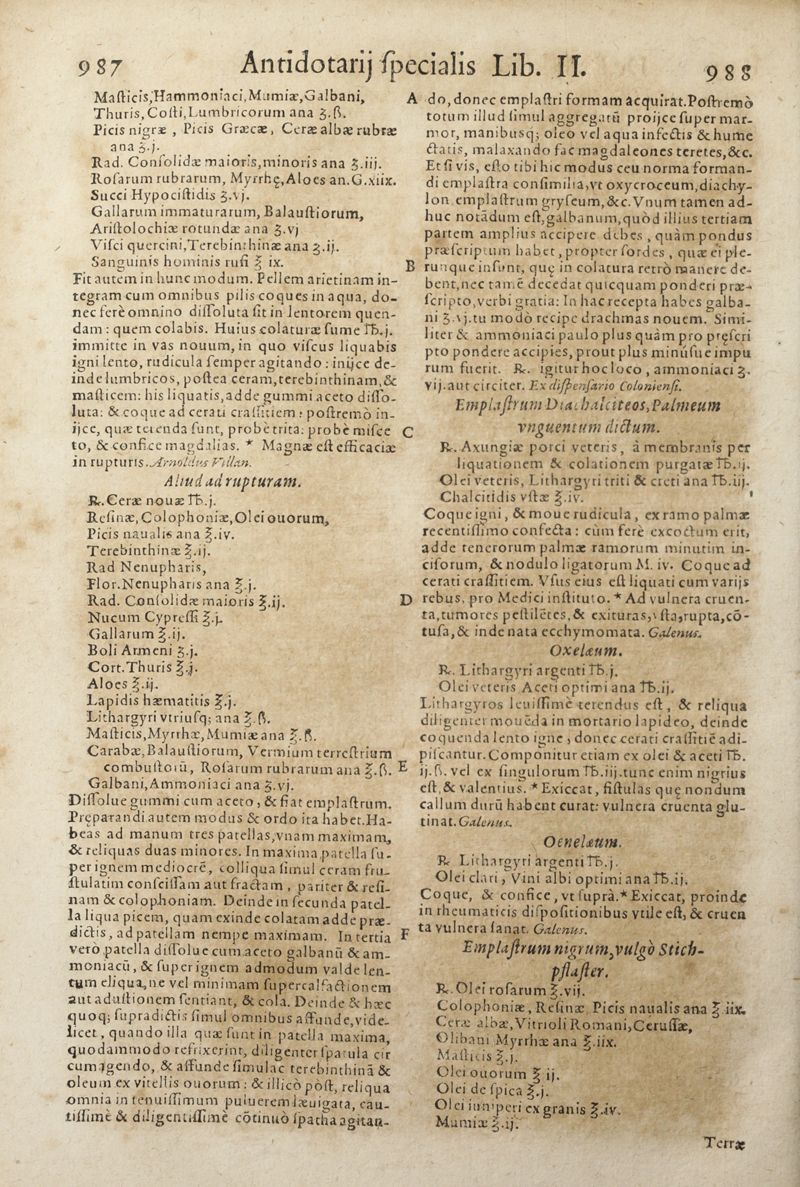 987
Antidotarij ſpecialis Lib. II.
988
Maſticis,Hammoniaci,Mumiæ,Galbani,
Thuris, Coſti, Lumbricorum ana ʒ.ß.
Picis nigræ , Picis Græcæ, Ceræ albæ rubræ
ana ʒ.j.
Rad. Conſolidæ maioris,minoris ana ʒ.iij.
Roſarum rubrarum, Myrrhę, Aloes an.G.xiix.
Succi Hypociſtidis ʒ.vj.
Gallarum immaturarum, Balauſtiorum,
Ariſtolochiæ rotundæ ana ʒ.vj
Viſci quercini, Terebinthinæ ana ʒ.ij.
Sanguinis hominis rufi ℥ ix.
Fit autem in hunc modum. Pellem arietinam in-
tegram cum omnibus pilis coques in aqua, do-
nec ferè omnino diſſoluta ſit in lentorem quen-
dam : quem colabis. Huius colaturæ ſume ℔.j.
immitte in vas nouum, in quo viſcus liquabis
igni lento, rudicula ſemper agitando : inijce de-
inde lumbricos, poſtea ceram,terebinthinam,&
maſticem: his liquatis,adde gummi aceto diſſo-
luta: & coque ad cerati craſſitiem : poſtremò in-
ijce, quæ terenda ſunt, probè trita: probè miſce
to, & confice magdalias. * Magnæ eſt efficaciæ
in rupturis. Arnoldus Villan.
Aliud ad rupturam.
℞. Ceræ nouæ ℔.j.
Reſinæ, Colophoniæ, Olei ouorum,
Picis naualis ana ℥.iv.
Terebinthinæ ℥.ij.
Rad Nenupharis,
Flor.Nenupharis ana ℥.j.
Rad. Conſolidæ maioris ℥.ij.
Nucum Cypreſſi ℥.j.
Gallarum ℥.ij.
Boli Armeni ʒ.j.
Cort.Thuris ℥.j.
Aloes ℥.ij.
Lapidis hæmatitis ℥.j.
Lithargyri vtriuſq; ana ℥.ß.
Maſticis,Myrrhæ,Mumiæ ana ℥.ß.
Carabæ,Balauſtiorum, Vermium terreſtrium
combuſtorū, Roſarum rubrarum ana ℥.ß.
Galbani,Ammoniaci ana ʒ.vj.
Diſſolue gummi cum aceto, & fiat emplaſtrum.
Pręparandi autem modus & ordo ita habet. Ha-
beas ad manum tres patellas,vnam maximam,
& reliquas duas minores. In maxima patella ſu-
per ignem mediocrē, colliqua ſimul ceram fru-
ſtulatim conſciſſam aut fractam , pariter & reſi-
nam & colophoniam. Deinde in ſecunda patel-
la liqua picem, quam exinde colatam adde præ-
dictis, ad patellam nempe maximam. In tertia
verò patella diſſolue cum aceto galbanū & am-
moniacū, & ſuper ignem admodum valde len-
tum eliqua, ne vel minimam ſupercalfactionem
aut aduſtionem ſentiant, & cola. Deinde & hæc
quoq; ſupradictis ſimul omnibus affunde,vide-
licet, quando illa quæ ſunt in patella maxima,
quodammodo refrixerint, diligenter ſpatula cir
cumagendo, & affunde ſimulac terebinthinā &
oleum ex vitellis ouorum : & illicò pòſt, reliqua
omnia in tenuiſſimum puluerem læuigata, cau-
tiſſimè & diligentiſſimè cōtinuò ſpatha agitan-
A do, donec emplaſtri formam acquirat.Poſtremò
totum illud ſimul aggregatū proijce ſuper mar-
mor, manibusq; oleo vel aqua infectis & hume
ctatis, malaxando fac magdaleones teretes,&c.
Et ſi vis, eſto tibi hic modus ceu norma forman-
di emplaſtra conſimilia,vt oxycroceum,diachy-
lon emplaſtrum gryſeum,&c. Vnum tamen ad-
huc notādum eſt,galbanum,quòd illius tertiam
partem amplius accipere debes , quàm pondus
præſcriptum habet, propter ſordes , quæ ei ple-
B runque inſunt, quę in colatura retrò manere de-
bent,nec tamē decedat quicquam ponderi præ-
ſcripto,verbi gratia: In hac recepta habes galba-
ni ʒ.vj.tu modò recipe drachmas nouem. Simi-
liter & ammoniaci paulo plus quàm pro pręſcri
pto pondere accipies, prout plus minúſue impu
rum fuerit. ℞. igitur hoc loco , ammoniaci ʒ.
vij.aut circiter. Ex diſpenſario Colonienſi.
Emplaſtrum Diachalciteos, Palmeum
C vnguentum dictum.
℞. Axungiæ porci veteris, à membranis per
liquationem & colationem purgatæ ℔.ij.
Olei veteris, Lithargyri triti & creti ana ℔.iij.
Chalcitidis vſtæ ℥.iv.
Coque igni, & moue rudicula , ex ramo palmæ
recentiſſimo confecta: cùm ferè excoctum erit,
adde tenerorum palmæ ramorum minutim in-
ciſorum, & nodulo ligatorum M. iv. Coque ad
cerati craſſitiem. Vſus eius eſt liquati cum varijs
D rebus, pro Medici inſtituto. * Ad vulnera cruen-
ta,tumores peſtilētes,& exituras,vſta,rupta,cō-
tuſa,& inde nata ecchymomata. Galenus.
Oxelæum.
℞. Lithargyri argenti ℔.j.
Olei veteris Aceti optimi ana ℔.ij.
Lithargyros leuiſſimè terendus eſt, & reliqua
diligenter mouēda in mortario lapideo, deinde
coquenda lento igne , donec cerati craſſitiē adi-
piſcantur.Componitur etiam ex olei & aceti ℔.
E ij.ß. vel ex ſingulorum ℔.iij.tunc enim nigrius
eſt,& valentius. * Exiccat, fiſtulas quę nondum
callum durū habent curat: vulnera cruenta glu-
tinat. Galenus.
Oenelæum.
℞ Lithargyri argenti ℔.j.
Olei clari, Vini albi optimi ana ℔.ij.
Coque, & confice, vt ſuprà.* Exiccat, proinde
in rheumaticis diſpoſitionibus vtile eſt, & cruen
F ta vulnera ſanat. Galenus.
Emplaſtrum nigrum,vulgò Stich-
pflaſter.
℞. Olei roſarum ℥.vij.
Colophoniæ, Reſinæ, Picis naualis ana ℥ iix.
Ceræ albæ,Vitrioli Romani,Ceruſſæ,
Olibani Myrrhæ ana ℥.iix.
Maſticis ℥.j.
Olei ouorum ℥ ij.
Olei de ſpica ℥.j.
Olei iuniperi ex granis ℥.iv.
Mumiæ ℥.ij.
Terræ